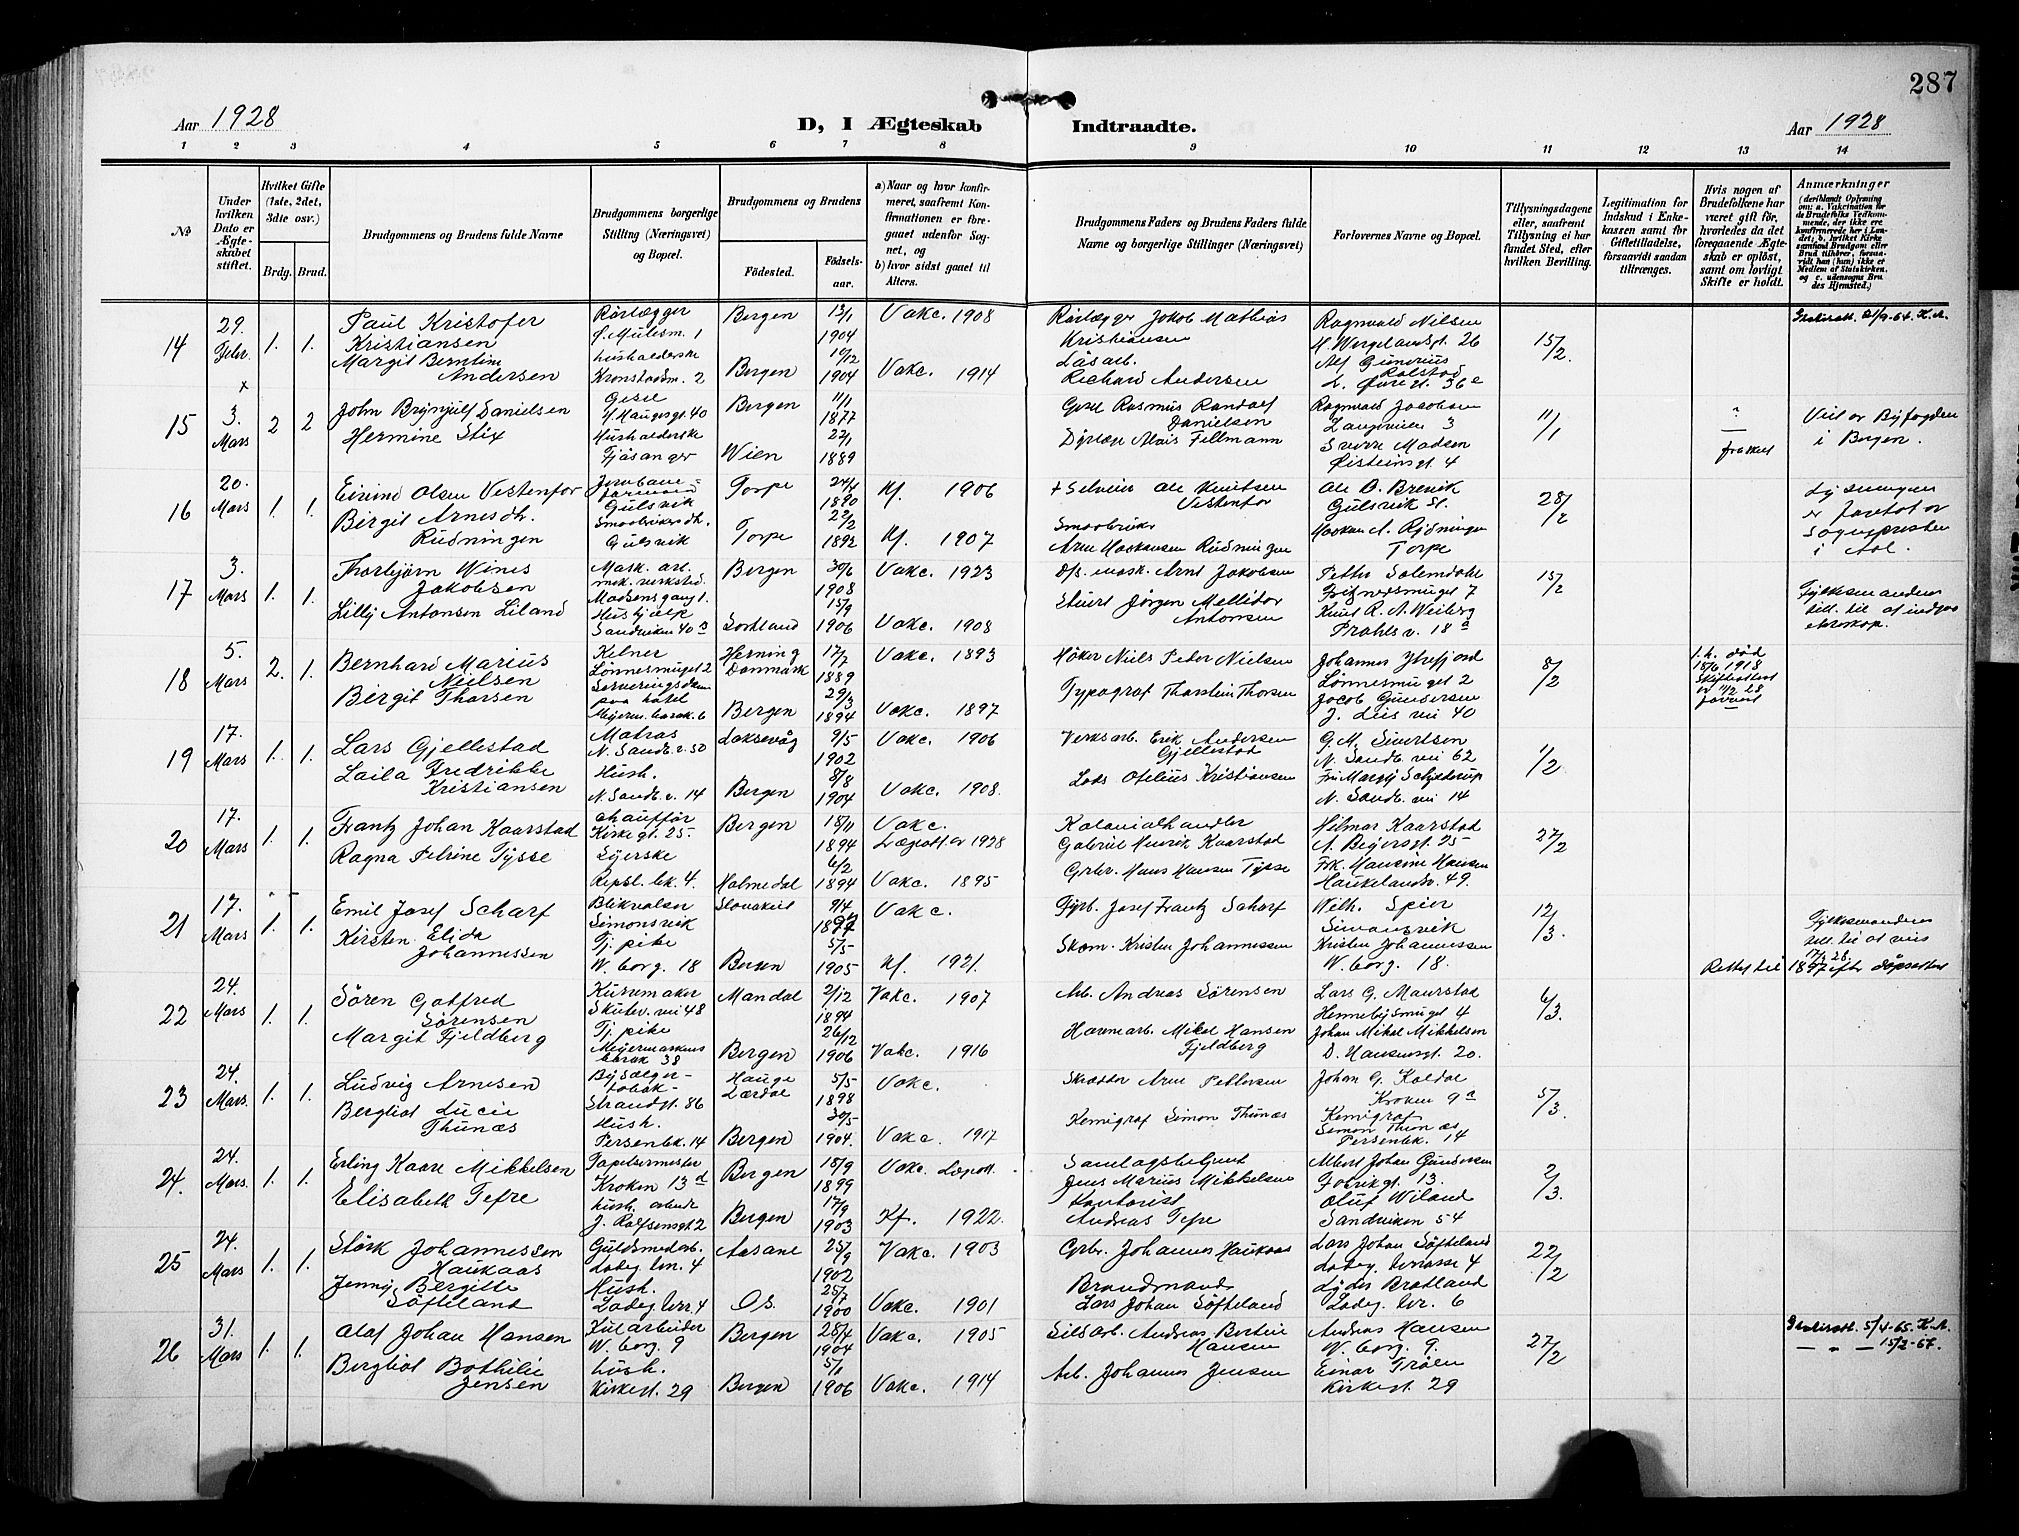 287
Aar 1928
D, I Ægteskab Indtraadte.
Aar 1928
1 2 3 4 5 6 7 8 9 10 11 12 13 14
No
Under hvilken Dato er Ægteskabet stiftet.
Hvilket Gifte (1ste, 2det, 3dte osv.)
Brdg. Brud.
Brudgommens og Brudens fulde Navne
Brudgommens borgerlige Stilling (Næringsvei) og Bopæl.
Brudgommens og Brudens
Fødested.
Fødselsaar.
a) Naar og hvor konfirmeret, saafremt Konfirmationen er foregaaet udenfor Sognet, og
b) hvor sidst gaaet til Alters.
Brudgommens Faders og Brudens Faders fulde Navne og borgerlige Stillinger (Næringsvei)
Forlovernes Navne og Bopæl.
Tillysningsdagene eller, saafremt Tillysning ei har fundet Sted, efter hvilken Bevilling.
Legitimation for Indskud i Enkekassen samt for Giftetilladelse, forsaavidt saadan tiltrænges.
Hvis nogen af Brudefolkene har været gift før, hvorledes da det foregaaende Ægteskab er opløst, samt om lovligt Skifte er holdt.
Anmærkninger
14 29. Febr. 1. 1.
Paul Kristofer Kristiansen
Margit Berntine Andersen
Rørlægger
Ø. Mulesm. 1
Husholderske
Kronstadm. 2
Bergen 13/1 1904 Vakc. 1908
Bergen 10/12 1904 Vakc. 1914
Rørlægger Jakob Mathias Kristiansen
Løsarb. Richard Andersen
Ragnvald Nilsen
H. Wergelandsgt. 26
Alf Gunerius Rolstad
15/2.
15 3. Mars 2 2
John Brynjulf Danielsen
Hermine Stix
H. Haugesgt. 40
Husholderske
Fjøsanger
Bergen 11/1 1877
Wien 22/1 1889
Rasmus Randolf Danielsen
Alois Fellmann
Ragnvald Jacobsen
Sverre Madsen
Øisteinsgt. 4
11/1
fraskilt
Viet av Byfogden i Bergen.
16 20. Mars 1. 1.
Eivind Olsen Vestenfor
Birgit Arnesdh. Rudningen
Gulsvik
Smaabrukerdh.
Gulsvik
Torpe 24/4 1890 Kf. 1906
Torpe 22/2 1892 Kf. 1907
+ Selveier Ole Knutsen Vestenfor
Smaabruker Arne Haakonsen Rudningen
Ole B. Brevik
Gulsvik St.
Haakon A. Rudningen
Torpe
28/2
Lysningen er foretat av Sognepresten i Aal.
17 3. Mars 1. 1.
Thorbjørn Wines Jakobsen
Lilly Antonsen Liland
Mask. arb. mek. verksted.
Madsensgang 1.
Hushjælp
Sandviken 40 a
Bergen 30/6 1908 Vakc. 1923
Lødingen 15/9 1906 Vakc. 1908
mask. Arnt Jakobsen
Stuert Jørgen Mellidor Antonsen
Petter Solemdahl
Knut R. A. Weiberg
Prahlsv. 18 a
15/2
Fylkesmandens till. til at indgaa ekteskap.
18 5. Mars 2. 1.
Bernhard Marius Nielsen
Birgit Thorsen
Kelner
Lønnesmuget 2
Serveringsdame paa hotel
Meyerm. barak. 6
Herning Danmark 17/7 1889 Vakc. 1893
Bergen 29/3 1894 Vakc. 1897
Høker Niels Peder Nielsen
Typograf Thorstein Thorsen
Johannes Ytrefjord
Lønnesmuget 2
Jacob Gundersen
J. Lies vei 40
8/2
1. h. død 18/6 1918
Skifteattest av 11/2 28
19 17. Mars 1. 1.
Lars Gjellestad
Laila Fredrikke Kristiansen
Matros
N. Sandv. v. 50
Hush.
N. Sandv. v. 14
Laksevåg 9/5 1902 Vakc. 1906
Bergen 8/8 1904 Vakc. 1908.
Verksarb. Erik Andersen Gjellestad
Lods Otelius Kristiansen
G. M. Sivertsen
N. Sandv. vei 62
N. Sandv. vei 14
1/2
20 17. Mars 1. 1.
Frantz Johan Kaarstad
Ragna Petrine Tysse
chauffør
Kirkegt. 25
Syerske
Repsl. bk. 4.
Bergen 18/11 1894 Vakc. Lægeatt. av 1928
Holmedal 6/2 1894 Vakc. 1895
Kolonialhandler Gabriel Henrik Kaarstad
Grbr. Hans Hansen Tysse
Hilmar Kaarstad
A. Beyersgt. 25
Frk. Hansine Hansen
Haukelandsv. 49.
27/2
21 17. Mars 1. 1.
Emil Josef Scharf
Kirsten Elida Johannessen
Blikvalser
Simonsvik
Tj. pike
W. borg. 18
Slovakiet 9/4 1897 Vakc.
Bergen 5/5 1905 Kf. 1921.
Fyrb. Josef Frantz Scharf
Skom. Kristen Johannessen
Wilh. Spier
Simonsvik
Kristen Johannessen
W. borg. 18.
12/3.
Fylkesmandens till. til at vies 17/3 28.
Rettet til 1897 efter dåpsattest
22 24. Mars 1. 1.
Søren Gotfred Sørensen
Margit Fjeldberg
Kurvmaker
Skutev. vei 48
Tj. pike
Meyermarkens barak 38
Mandal 2/12 1894 Vakc. 1907
Bergen 26/12 1906 Vakc. 1916
Arb. Andreas Sørensen
Havnearb. Mikal Hansen Fjeldberg
Lars G. Maurstad
Hennebysmuget 4
Johan Mikal Mikkelsen
D. Hansensgt. 20.
6/3.
23 24. Mars. 1. 1.
Ludvig Arnesen
Bergliot Lucie Thunæs
Bysælger tobak
Strandgt. 86
Hush.
Persenbk. 14
Hauge Lærdal 5/5 1898 Vakc.
Bergen 30/5 1904. Vakc. 1917
Skrædder Arne Pettersen
Kemigraf Simon Thunæs
Johan G. Koldal
Kroken 9 a
Kemigraf Simon Thunæs
Persenbk. 14
5/3.
24. 24. Mars. 1. 1.
Erling Kaare Mikkelsen
Elisabeth Tefre
Tapetsermester
Kroken 13 d
J. Rolfsensgt 2
Bergen 18/9 1899 Vakc. Lægeatt.
Bergen 17/9 1903 Kf. 1922.
Jens Marius Mikkelsen
Kontorist Andreas Tefre
Albert Johan Gundersen
13.
Oluf Wiland
Sandviken 54
2/3.
25 24. Mars 1. 1.
Størk Johannessen Haukaas
Jenny Bergitte Søfteland
Guldsmedarb.
Ladeg. terr. 4
Hush.
Ladeg. terr. 4
Aasane 25/9 1902 Vakc. 1903
Os. 25/7 1900 Vakc. 1901
Grbr. Johannes Haukaas
Brandmand Lars Johan Søfteland
Lars Johan Søfteland
Ladeg. terrasse 4
Lyder Bratland
Ladeg. terr. 6
22/2
26 31. Mars 1. 1.
Olaf Johan Hansen
Bergliot Bothilie Jensen
Kularbeider
W. borg. 9
Hush.
Kirkegt. 29
Bergen 28/4 1904 Vakc. 1905
Bergen 5/1 1906 Vakc. 1914
Sildarb. Andreas Bertin Hansen
Arb. Johannes Jensen
Andreas Hansen
W. borg. 9.
Einar Trøen
Kirkegt. 29
27/2
5/4-65. K.A.
— " — 15/2-67.